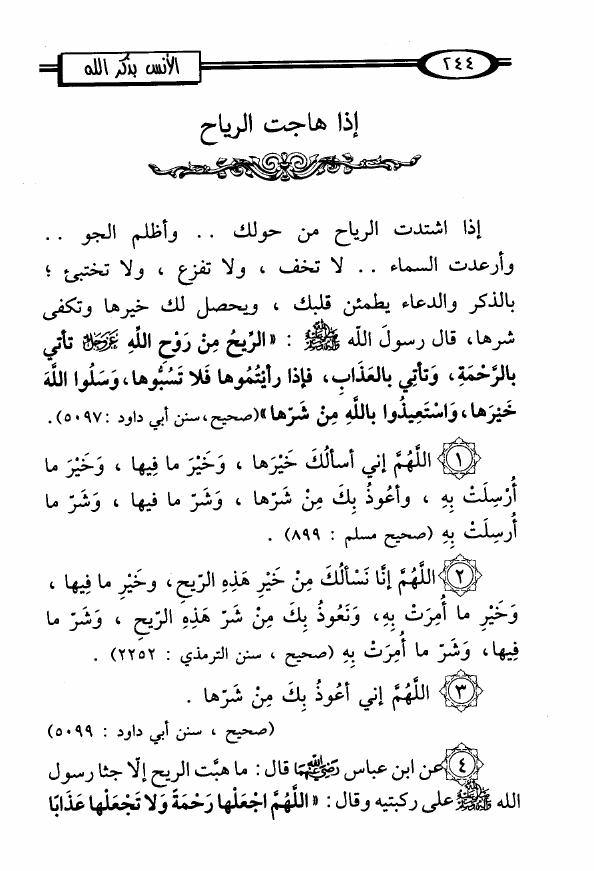 ٢٤٤
الأنس بذكر الله
إذا هاجت الرياح
إذا اشتدت الرياح من حولك .. وأظلم الجو ..
وأرعدت السماء .. لا تخف ، ولا تفزع ، ولا تختبئ ؛
بالذكر والدعاء يطمئن قلبك ، ويحصل لك خيرها وتكفى
شرها، قال رسولَ الله ﷺ : «الرِّيحُ مِنْ رَوْحِ اللَّهِ عَزَّوَجَلَّ تأتي
بالرَّحْمَةِ، وَتَأتِي بالعَذَابِ، فَإذا رأيْتُموها فَلا تَسُبُّوها، وَسَلُوا اللَّهَ
خَيْرَها، وَاسْتَعِيذُوا باللَّهِ مِنْ شَرّها»(صحيح،سنن أبي داود :٥٠٩٧).
١ اللَّهُمَّ إني أسألُكَ خَيْرَها ، وَخَيْرَ ما فِيها ، وَخَيْرَ ما
أُرْسِلَتْ بِهِ ، وأعُوذُ بِكَ مِنْ شَرّها ، وَشَرّ ما فيها ، وَشَرّ ما
أُرسِلَتْ بِهِ (صحيح مسلم : ٨٩٩) .
٢ اللَّهُمَّ إنَّا نَسْألُكَ مِنْ خَيْرِ هَذِهِ الرّيحِ، وخَيْرِ ما فِيها ،
وَخَيْرِ ما أُمِرَتْ بِهِ، وَنَعُوذُ بِكَ مِنْ شَرّ هَذِهِ الرّيحِ ، وَشَرّ ما
فِيها، وَشَرّ ما أُمِرَتْ بِهِ (صحيح ، سنن الترمذي : ٢٢٥٢) .
٣ اللَّهُمَّ إني أعُوذُ بِكَ مِنْ شَرّها .
(صحيح ، سنن أبي داود : ٥٠٩٩)
٤ عن ابن عباس رَضِيَ اللَّهُ عَنْهُمَا قال: ما هبَّت الريح إلّا جثا رسول
الله ﷺ على ركبتيه وقال: «اللَّهُمَّ اجْعَلْها رَحْمَةً وَلا تَجْعَلْها عَذَابًا